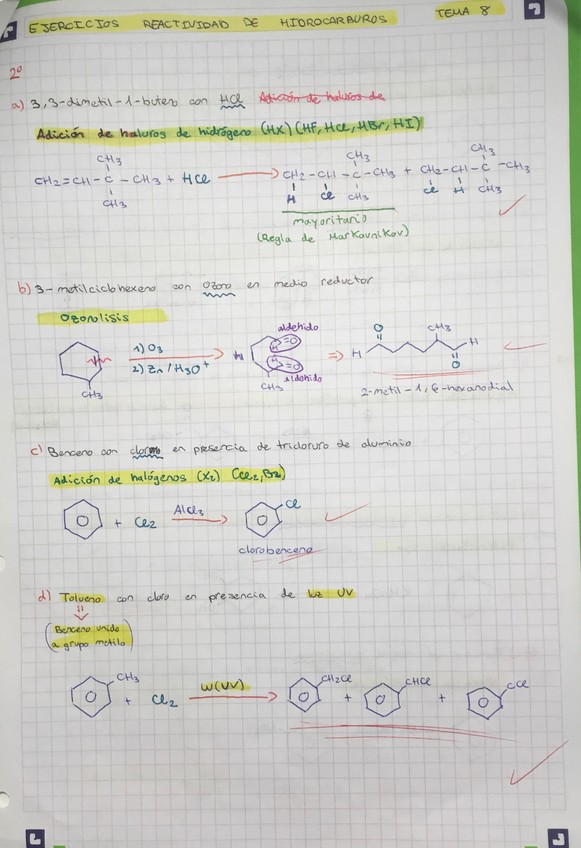 EJERCICIOS REACTIVIDAD DE HIDROCARBUROS TEMA 8
2º
a) 3,3-dimetil-1-buteno con HCl Adición de haluros de
Adición de haluros de hidrógeno (HX) (HF, HCl, HBr, HI)
CH3 CH3 CH3
CH2=CH-C-CH3 + HCl CH2-CH-C-CH3 + CH2-CH-C-CH3
CH3 H Cl CH3 Cl H CH3
mayoritario
(Regla de Markovnikov)
b) 3-metilciclohexeno con ozono en medio reductor
Ozonolisis
aldehido
1) O3 H =O O CH3
2) Zn/H3O+ H =O ⇒ H H
CH3 CH3 aldehido O
2-metil-1,6-hexanodial
c) Benceno con cloro en presencia de tricloruro de aluminio
Adición de halógenos (X2) (Cl2, Br2)
+ Cl2 AlCl3 Cl
clorobenceno
d) Tolueno con cloro en presencia de luz UV
(Benceno unido
a grupo metilo)
CH3 + Cl2 W(UV) CH2Cl + CHCl + CCl